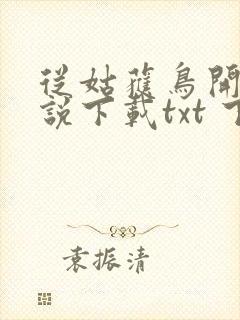 從姑獲鳥開
說下載txt 下
袁振清